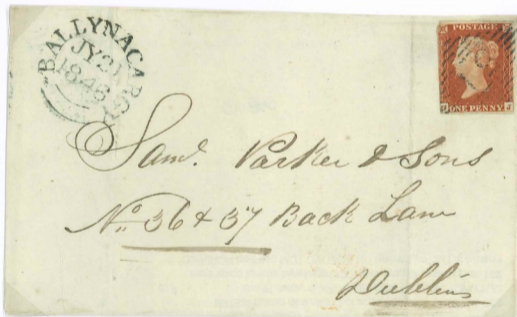 BALLYNACARGY
JY 21
1846
POSTAGE
ONE PENNY
J
Saml. Parker & Sons
No. 36 & 37 Back Lane
Dublin